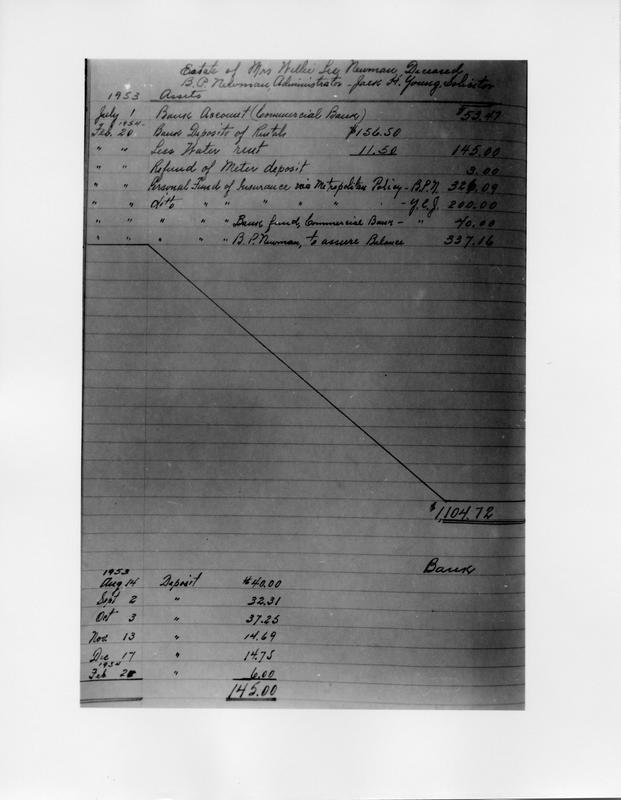 Estate of Mrs Willie Lee Newman, Deceased
B.P. Newman, Administrator - Jack H. Young, Solicitor
1953 Assets
July 1 Bank Account (Commercial Bank) $53.47
1954
Feb. 20 Bank Deposits of Rentals $156.50
" " Less Water rent 11.50 145.00
" " Refund of Meter deposit 3.00
" " Personal Fund of Insurance via Metropolitan Policy - B.P.N. 326.09
" " ditto " " " " " - 200.00
" " " " " Bank fund, Commercial Bank - " 40.00
" " " " " B.P. Newman, to assure Balance 337.16
$1,104.72
Bank
1953
Aug 14 Deposit $40.00
Sept 2 " 32.31
Oct 3 " 37.25
Nov 13 " 14.69
Dec 17 " 14.75
1954
Feb 20 " 6.00
145.00